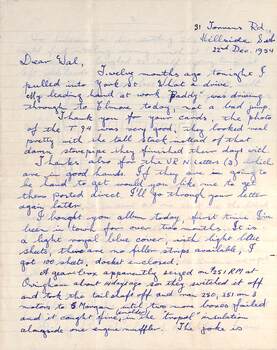 31 Tomms Rd.,
Hillside East
22nd Dec. 1954
Dear Wal,
Twelve months ago, tonight I
pulled into York St. What a drive.
My leading hand at work Paddy was driving
through to Elmore today, not a bad jump.
Thank you for your cards, the photo
of the T 94 was very good, they looked real
pretty with the tall stack instead of that
damn stovepipe they finished their days with.
Thanks also for the V R N Letters (3) which
are in good hands. If they are in going to
be hard to get would you like me to get
them posted direct. I'll go through your letter
again later.
I bought you album today, first time I'm
been in town for over two months. It is
a light royal blue cover, with light blue
shuts, there are no filler stamps available, I
got 100 shuts, docket enclosed.
A gearbox apparently seized on 251 RM at
Ovingham about 10 days ago so they switched it off
and took the tailshaft off and man 250, 251 on 1
motor to S. Morgan, until two more boxes failed
and it caught fire in the "trapal" insulation
alongside one engine muffler. The joke is